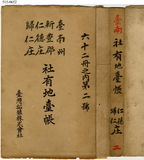 六十二冊之內第二號
臺南州
新豐郡
仁德庄
歸仁庄
社有地臺帳
臺灣製糖株式會社
臺南
社有地臺帳
仁德庄
歸仁庄
二